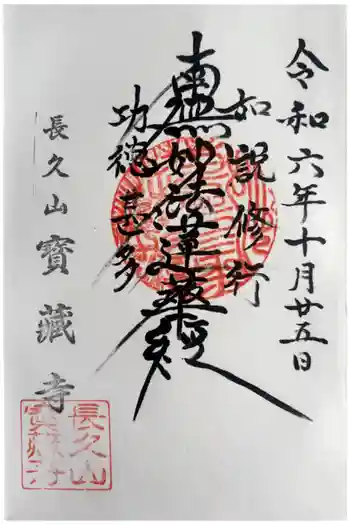 令和六年十月廿五日
如説修行
南無妙法蓮華経
功徳甚多
長久山
寶藏寺
長久山
寶藏寺